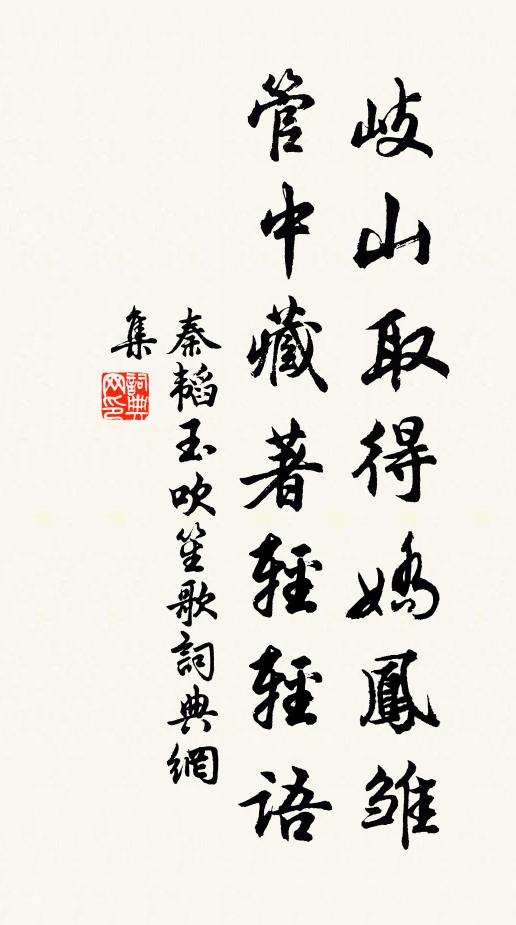 岐山取得嬌鳳雛
管中藏著輕輕語
秦韜玉吹笙歌詞典網
集
詞典
网印